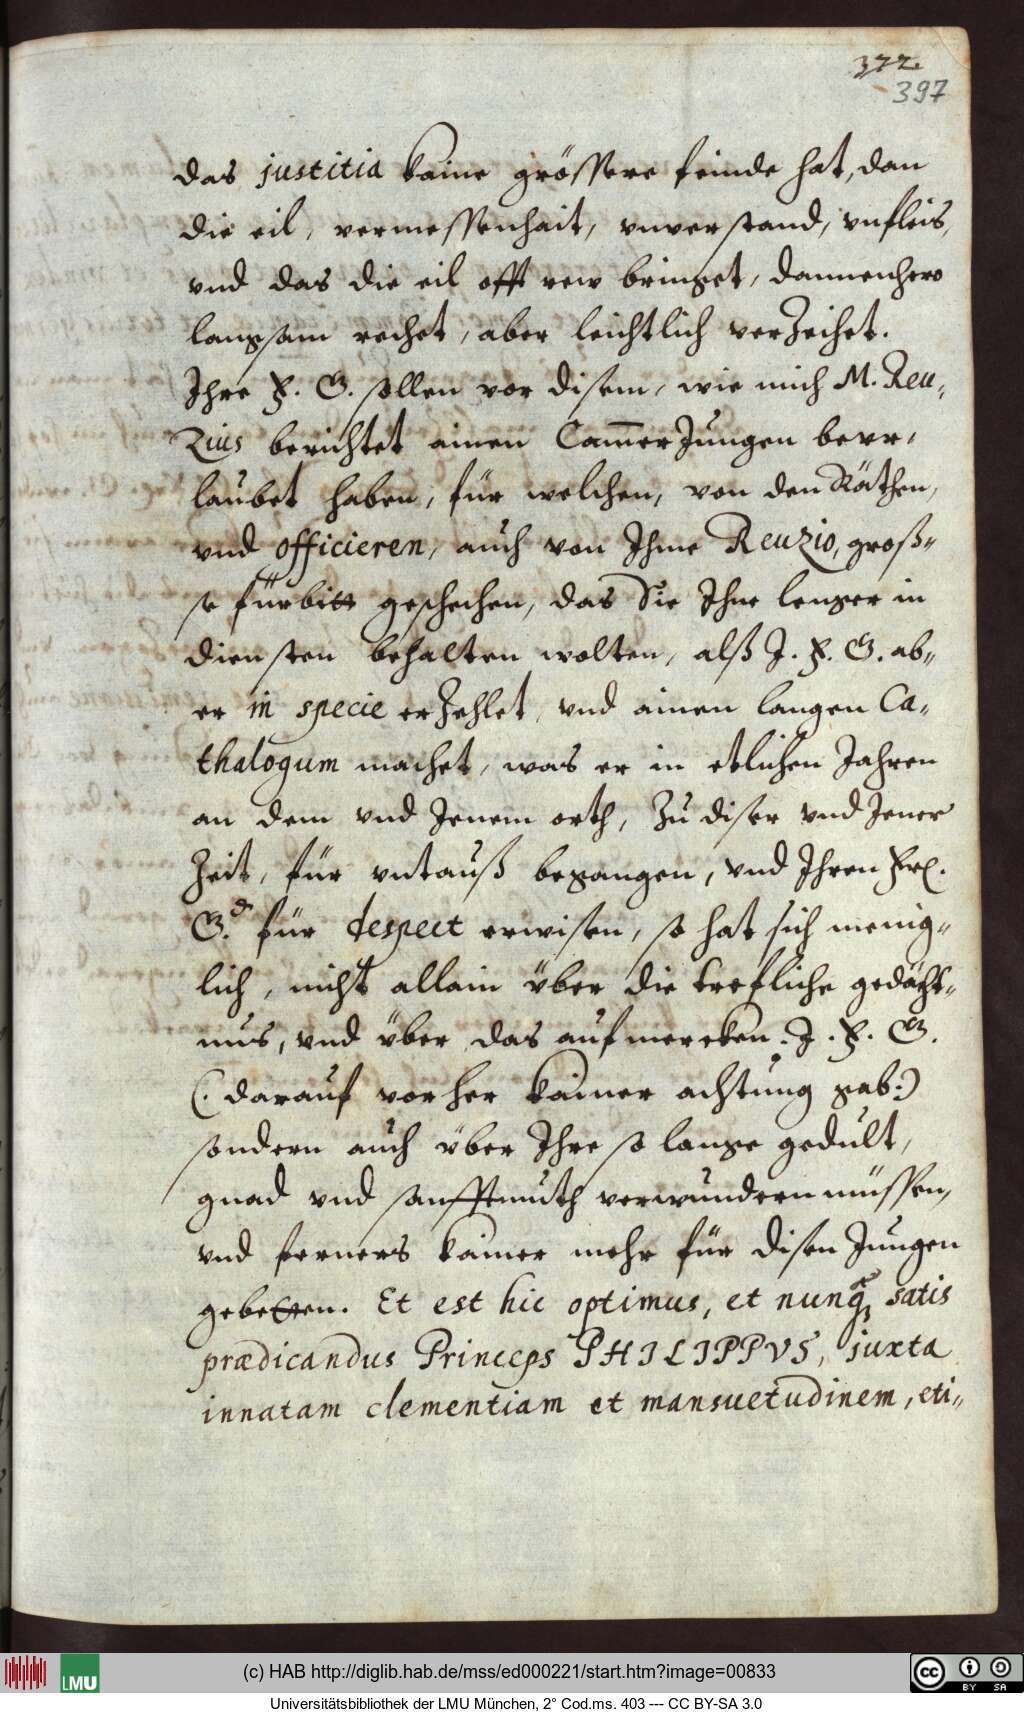 377.
397
das justitia kaine grössere feinde hat, dan
die eil, vermessenhait, vnverstand, vnfleis,
vnd das die eil offt rew bringet, dannenhero
langsam rechet, aber leichtlich verzeihet.
Ihre F. G. sollen vor disem, wie mich M. Reu-
zius berichtet ainen Cam̄erJungen bevr-
laubet haben, für welchen, von den Räthen,
vnd officieren, auch von Ihme Reuzio, groß-
se fürbitt geschechen, das Sie Ihne lenger in
diensten behalten wolten, alß I. F. G. ab-
er in specie erzehlet, vnd ainen langen Ca-
thalogum machet, was er in etlichen Jahren
an dem vnd Jenem orth, zu diser vnd Jener
Zeit, für vntauß begangen, vnd Ihren Frl.
G.d für despect erwisen, so hat sich menig-
lich, nicht allain über die trefliche gedächt-
nus, vnd über das aufmercken I. F. G.
(. darauf vorher kainer achtung gab:)
sondern auch über Ihre so lange gedult,
gnad vnd sanfftmuth verwundern müssen,
vnd ferners kainer mehr für disen Jungen
gebetten. Et est hic optimus, et nunq̃ satis
prædicandus Princeps PHILIPPVS, juxta
innatam clementiam et mansuetudinem, eti-
(c) HAB http://diglib.hab.de/mss/ed000221/start.htm?image=00833
LMU
cc BY SA
Universitätsbibliothek der LMU München, 2° Cod.ms. 403 --- CC BY-SA 3.0